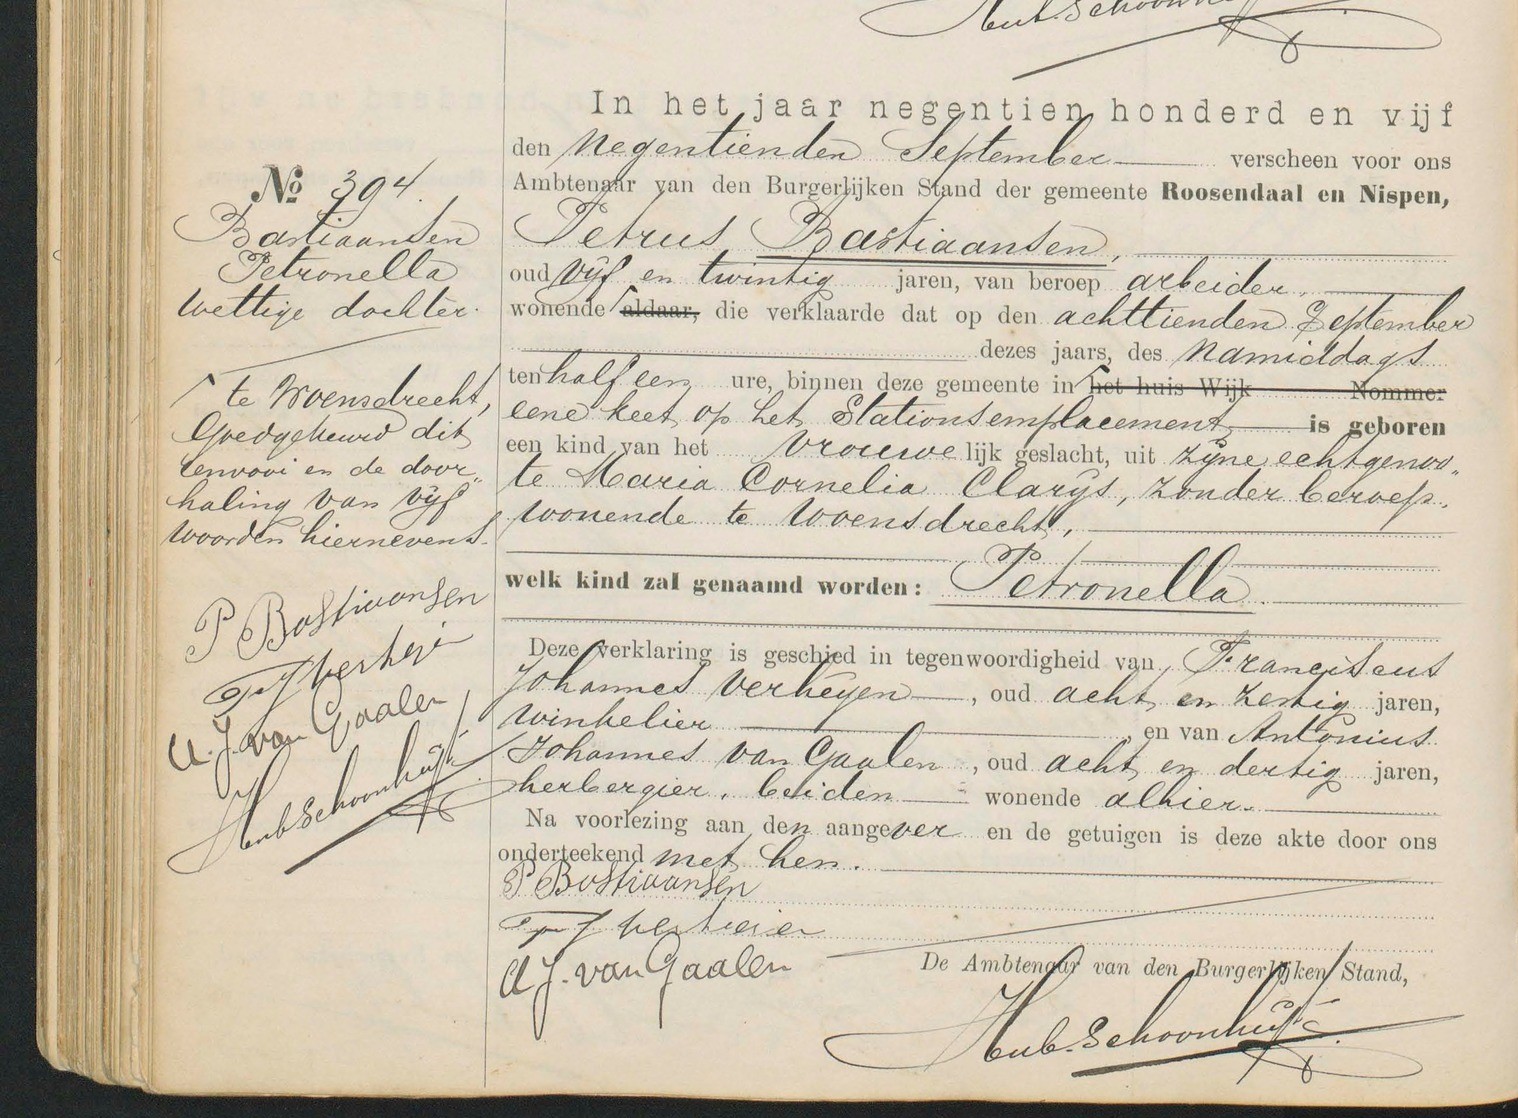 Hub. Schoonhuijt
No 394.
Bastiaansen
Petronella
wettige dochter.
te Woensdrecht,
Goedgekeurd dit
renvooi en de door„
haling van vijf
woorden hiernevens.
P Bastiaansen
F J verheije
A. J. van Gaalen
Hub Schoonhuijt
In het jaar negentien honderd en vijf
den negentienden September verscheen voor ons
Ambtenaar van den Burgerlijken Stand der gemeente Roosendaal en Nispen,
Petrus Bastiaansen,
oud vijf en twintig jaren, van beroep arbeider,
wonende ⌈ aldaar, die verklaarde dat op den achttienden September
dezes jaars, des namiddags
ten half een ure, binnen deze gemeente in ⌈ het huis Wijk Nommer
eene keet op het Stationsemplacement is geboren
een kind van het vrouwelijk geslacht, uit zijne echtgenoo„
te Maria Cornelia Clarijs, zonder beroep,
wonende te Woensdrecht,
welk kind zal genaamd worden: Petronella.
Deze verklaring is geschied in tegenwoordigheid van Franciscus
Johannes Verheijen, oud acht en zestig jaren,
winkelier, en van Antonius
Johannes van Gaalen, oud acht en dertig jaren,
herbergier, beiden wonende alhier.
Na voorlezing aan den aangever en de getuigen is deze akte door ons
onderteekend met hen.
P Bastiaansen
F J verheien
A J. van Gaalen
De Ambtenaar van den Burgerlijken Stand,
Hub. Schoonhuijt